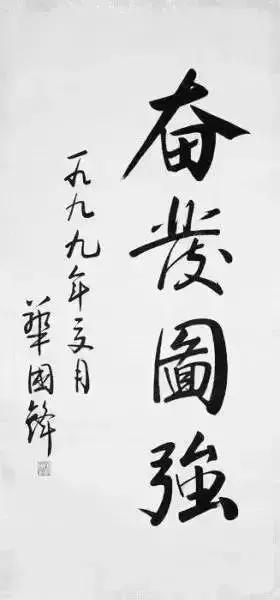 奮發圖強
一九九九年夏月
華國鋒